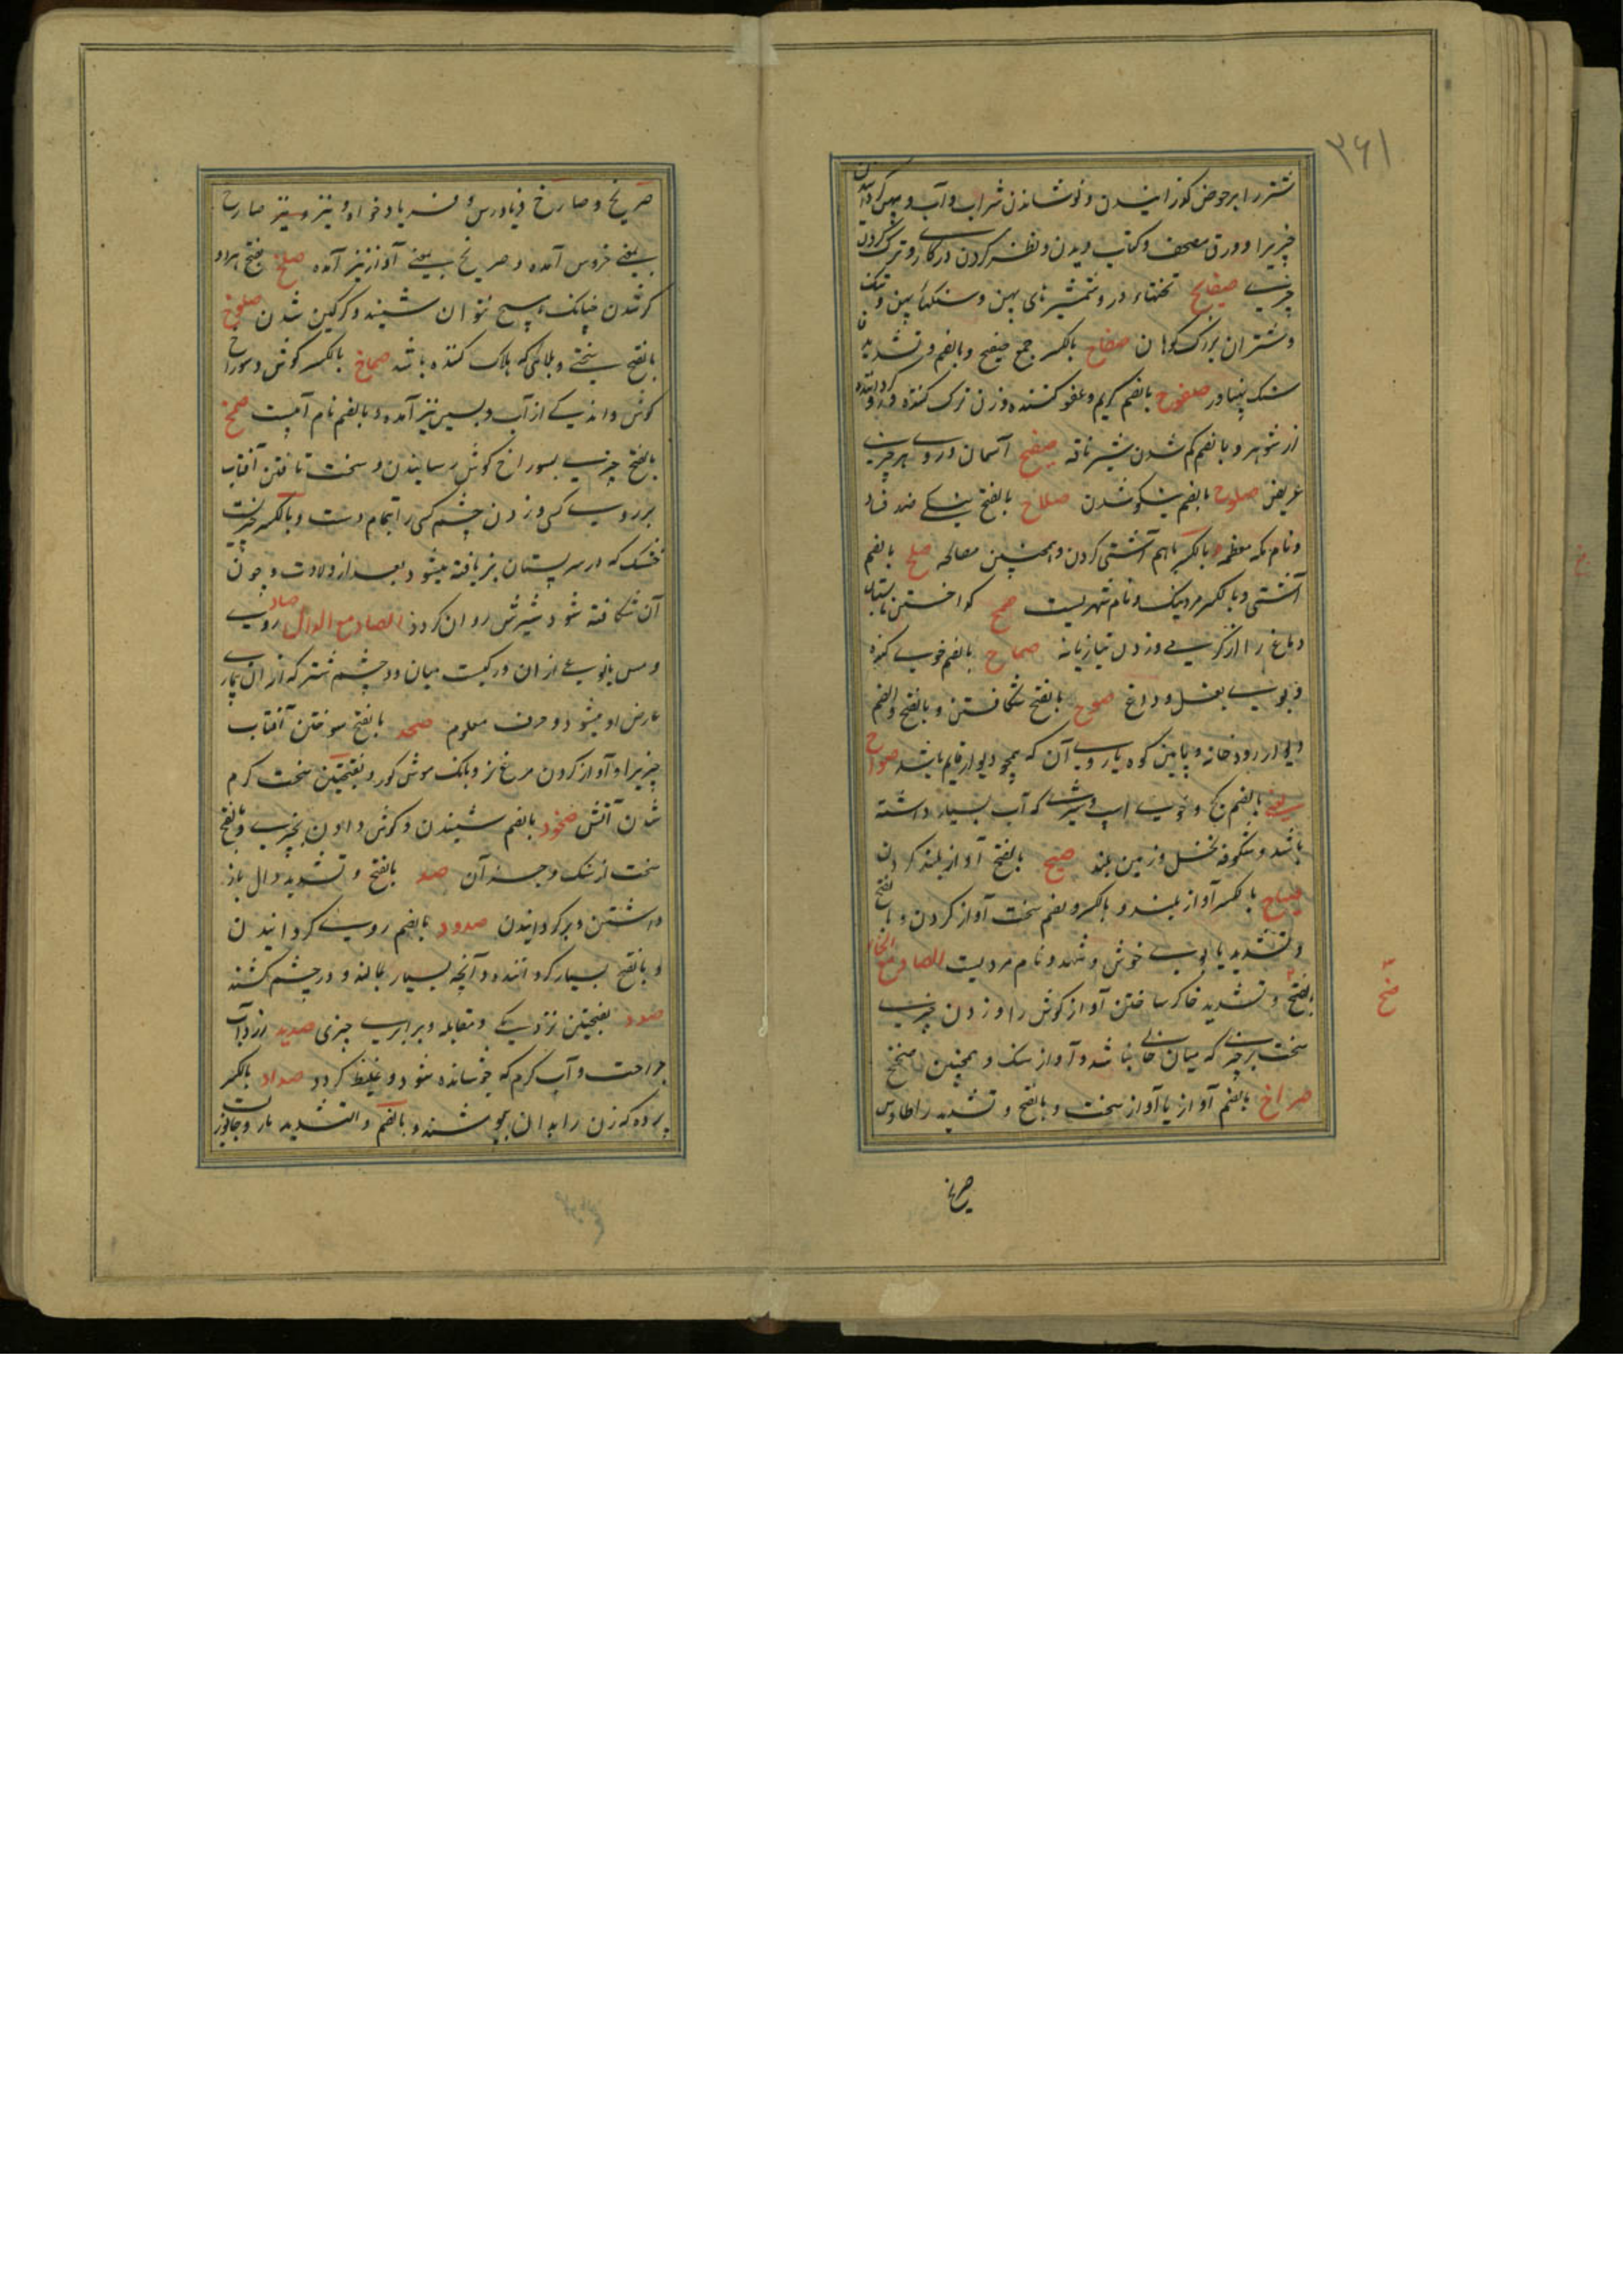 ۳۶۱
شتر را بر حوض گذرانیدن و نوشاندن شراب و آب و پهن گردانیدن
چیزیرا و ورق مصحف و کتاب دیدن و نظر کردن در کاری و ترک کردن
چیزیست صفایح تختهاء در و شمشیرهای پهن و سنگهاء پهن و تنک
و شتران بزرک کوهان صفاح بالکسر جمع صفیح و بالضم و تشدید
سنک پهناور صفوح بالضم کریم و عفو کننده و زن ترک کننده و
از شوهر و بالضم کم شدن شیر ناقه صفیح آسمان و روی هر چیزی
عریض صلوح بالضم نیکو شدن صلاح بالفتح نیکی ضد فساد
و نام مکه معظمه و بالکسر باهم آشتی کردن و همچنین مصالحه صلح بالضم
آشتی و بالکسر مرد نیک و نام شهریست صمح کداختن تابستان
دماغ را از کرمی و زدن بتازیانه صماح بالضم خوی کنده
و بوی بغل و داغ صوح بالفتح شکافتن و بالفتح والضم
دیوار رودخانه و پایین کوه یا روی آن که همچو دیوار قایم باشد صواح
بالضم کج و خوی اسپ و شیریست که آب بسیار داشته
باشد و شکوفه نخل و زمین بلند صیح بالفتح آواز بلند کردن
صیاح بالکسر آواز بلند و بالکسر و بضم سخت آواز کردن و بالفتح
و تشدید یا بوی خوش و شهد و نام مردیست الصاد مع الخاء
صخ
بالفتح و تشدید خا کر ساختن آواز کوش را و زدن چیزی
سخت بر چیزی که میان خالی نباشد و آواز سنک و همچنین صخیخ
صراخ بالضم آواز یا آواز سخت و بالفتح و تشدید را طاوس
صریخ
صریخ و صارخ فریادرس و فریاد خواه و نیز صارخ
بمعنی خروس آمده و صریخ بمعنی آواز نیز آمده صلخ بفتح هر دو
کر شدن چنانکه هیچ نتوان شنید و کرکین شدن صلوخ
بالفتح سختی و بلائی که هلاک کننده باشد صماخ بالکسر کوش و سوراخ
کوش و اندکی از آب و بسین نیز آمده و بالضم نام آبیست صمخ
بالفتح چیزی بسوراخ کوش رسانیدن و سخت تافتن آفتاب
بر روی کسی و زدن چشم کسی را بتمام دست و بالکسر چیزیست
خشک که در سر پستان بز یافته میشود بعد از ولادت و چون
آن شکافته شود شیرش روان کردد الصاد مع الدال صاد روی
و مس یا نوعی از آن و رکیست میان دو چشم شتر که از آن بیماری
عارض او میشود و حرف معلوم صخد بالفتح سوختن آفتاب
چیزیرا و آواز کردن مرغ نر و بانک موش کور و بفتحتین سخت کرم
شدن آتش صخود بالضم شنیدن و کوش دادن بچیزی و بالفتح
سخت از سنک و جز آن صد بالفتح و تشدید دال باز
داشتن و برکردانیدن صدود بالضم روی کردانیدن
و بالفتح بسیار کرداننده و آنچه بسیار بمالند و در چشم کشند
صدد بفتحتین نزدیکی و مقابله و برابری چیزی صدید زرداب
جراحت و آب کرم که جوشانده شود و غلیظ کردد صداد بالکسر
پرده که زن را بدان پوشند و بالضم والتشدید مار و جانوریست